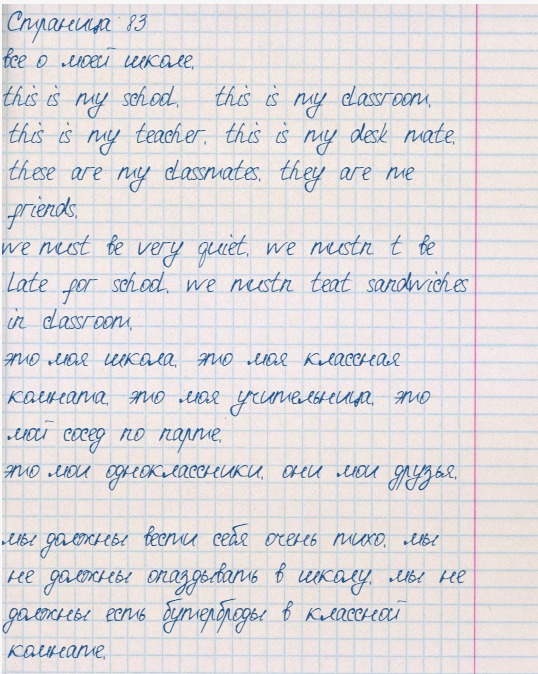 Страница 83
все о моей школе.
this is my school. this is my classroom.
this is my teacher. this is my desk mate.
these are my classmates. they are me
friends.
we must be very quiet. we mustn t be
late for school. we mustn teat sandwiches
in classroom.
это моя школа. это моя классная
комната. это моя учительница. это
мой сосед по парте.
это мои одноклассники. они мои друзья.
мы должны вести себя очень тихо. мы
не должны опаздывать в школу. мы не
должны есть бутерброды в классной
комнате.